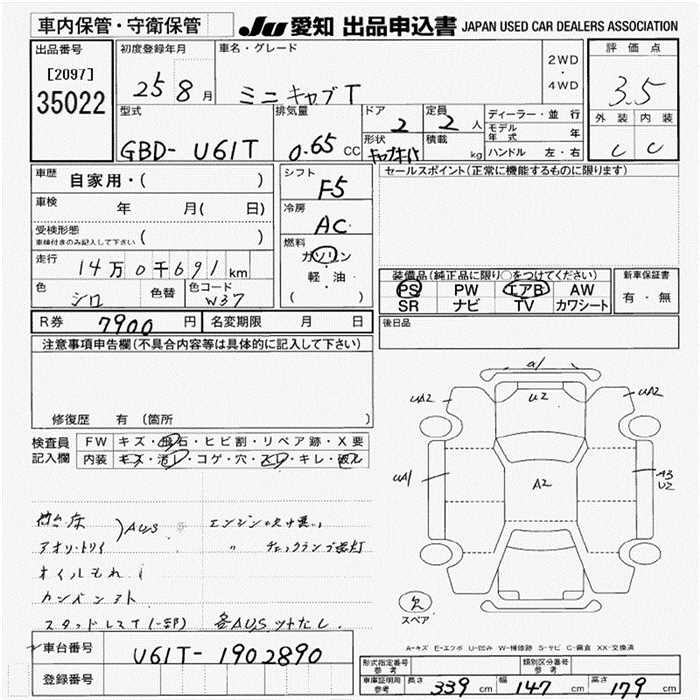 車内保管・守衛保管
JU 愛知 出品申込書 JAPAN USED CAR DEALERS ASSOCIATION
出品番号
[2097]
35022
初度登録年月
25 8月
車名・グレード
ミニキャブT
2WD
・
4WD
評価点
3.5
外装 内装
C C
型式
GBD- U61T
排気量
0.65 CC
ドア
2
定員
2人
形状
積載
kg
ディーラー・並行
モデル年式 年
ハンドル 左・右
車歴
自家用・( )
車検
年 月( 日)
受検形態
車検付きのみ記入して下さい ( )
走行
14万0千691km
色
シロ
色替
色コード
W37
シフト
F5
冷房
AC
燃料
ガソリン
・
軽・油
( )
セールスポイント(正常に機能するものに限ります)
装備品(純正品に限り○をつけてください)
PS PW エアB AW
SR ナビ TV カワシート
新車保証書
有・無
R券 7900円
名変期限 月 日
後日品
注意事項申告欄(不具合内容等は具体的に記入して下さい)
修復歴 有 (箇所 )
検査員記入欄
FW キズ・飛石・ヒビ割・リペア跡・X要
内装 キズ・汚レ・コゲ・穴・スレ・キレ・破レ
荷台床
アオリ・トリイ
AUS
エンジン
〃 チェックランプ点灯
オイルもれ
スタッドレスT(一部)
各AUS
a1
UA2
U2
UA2
UA1
A2
A3
U2
欠
スペア
A-キズ E-エクボ U-凹み W-補修跡 S-サビ C-腐食 XX-交換済
車台番号
U61T- 1902890
登録番号
形式指定番号
参考
類別区分番号
参考
車庫証明用
参考
長さ 339cm
幅 147cm
高さ 179cm